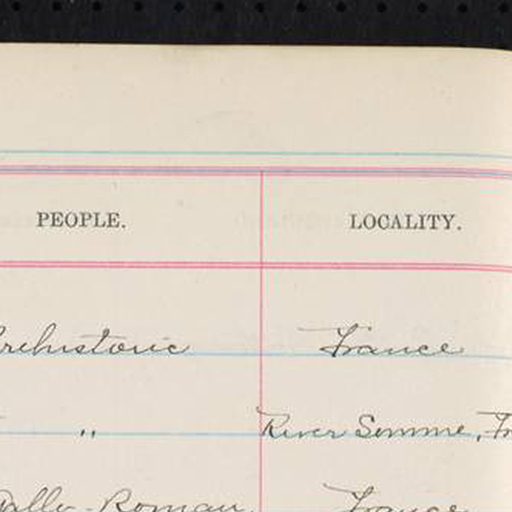 PEOPLE. LOCALITY.
Prehistoric France
" River Somme, Fr
Gallo-Roman France